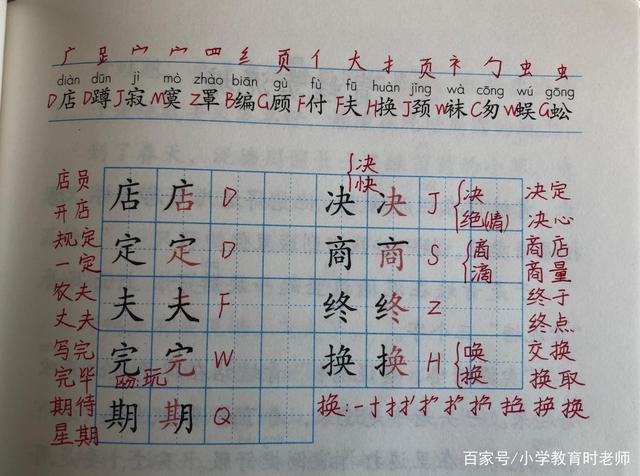 广 𧾷 宀 宀 罒 纟 页 亻 大 扌 页 衤 勹 虫 虫
diàn dūn jì mò zhào biān gù fù fū huàn jǐng wà cōng wú gōng
D店 D蹲 J寂 M寞 Z罩 B编 G顾 F付 F夫 H换 J颈 W袜 C匆 W蜈 G蚣
决
快
店员 店 店 D 决 决 J 决 决定
开店 绝(情) 决心
规定 定 定 D 商 商 S 商 商店
一定 滴 商量
农夫 夫 夫 F 终 终 Z 终于
丈夫 终点
写完 完 完 W 换 换 H 唤 交换
完毕 玩 换 换取
期待 期 期 Q 换:一
星期
百家号/小学教育时老师